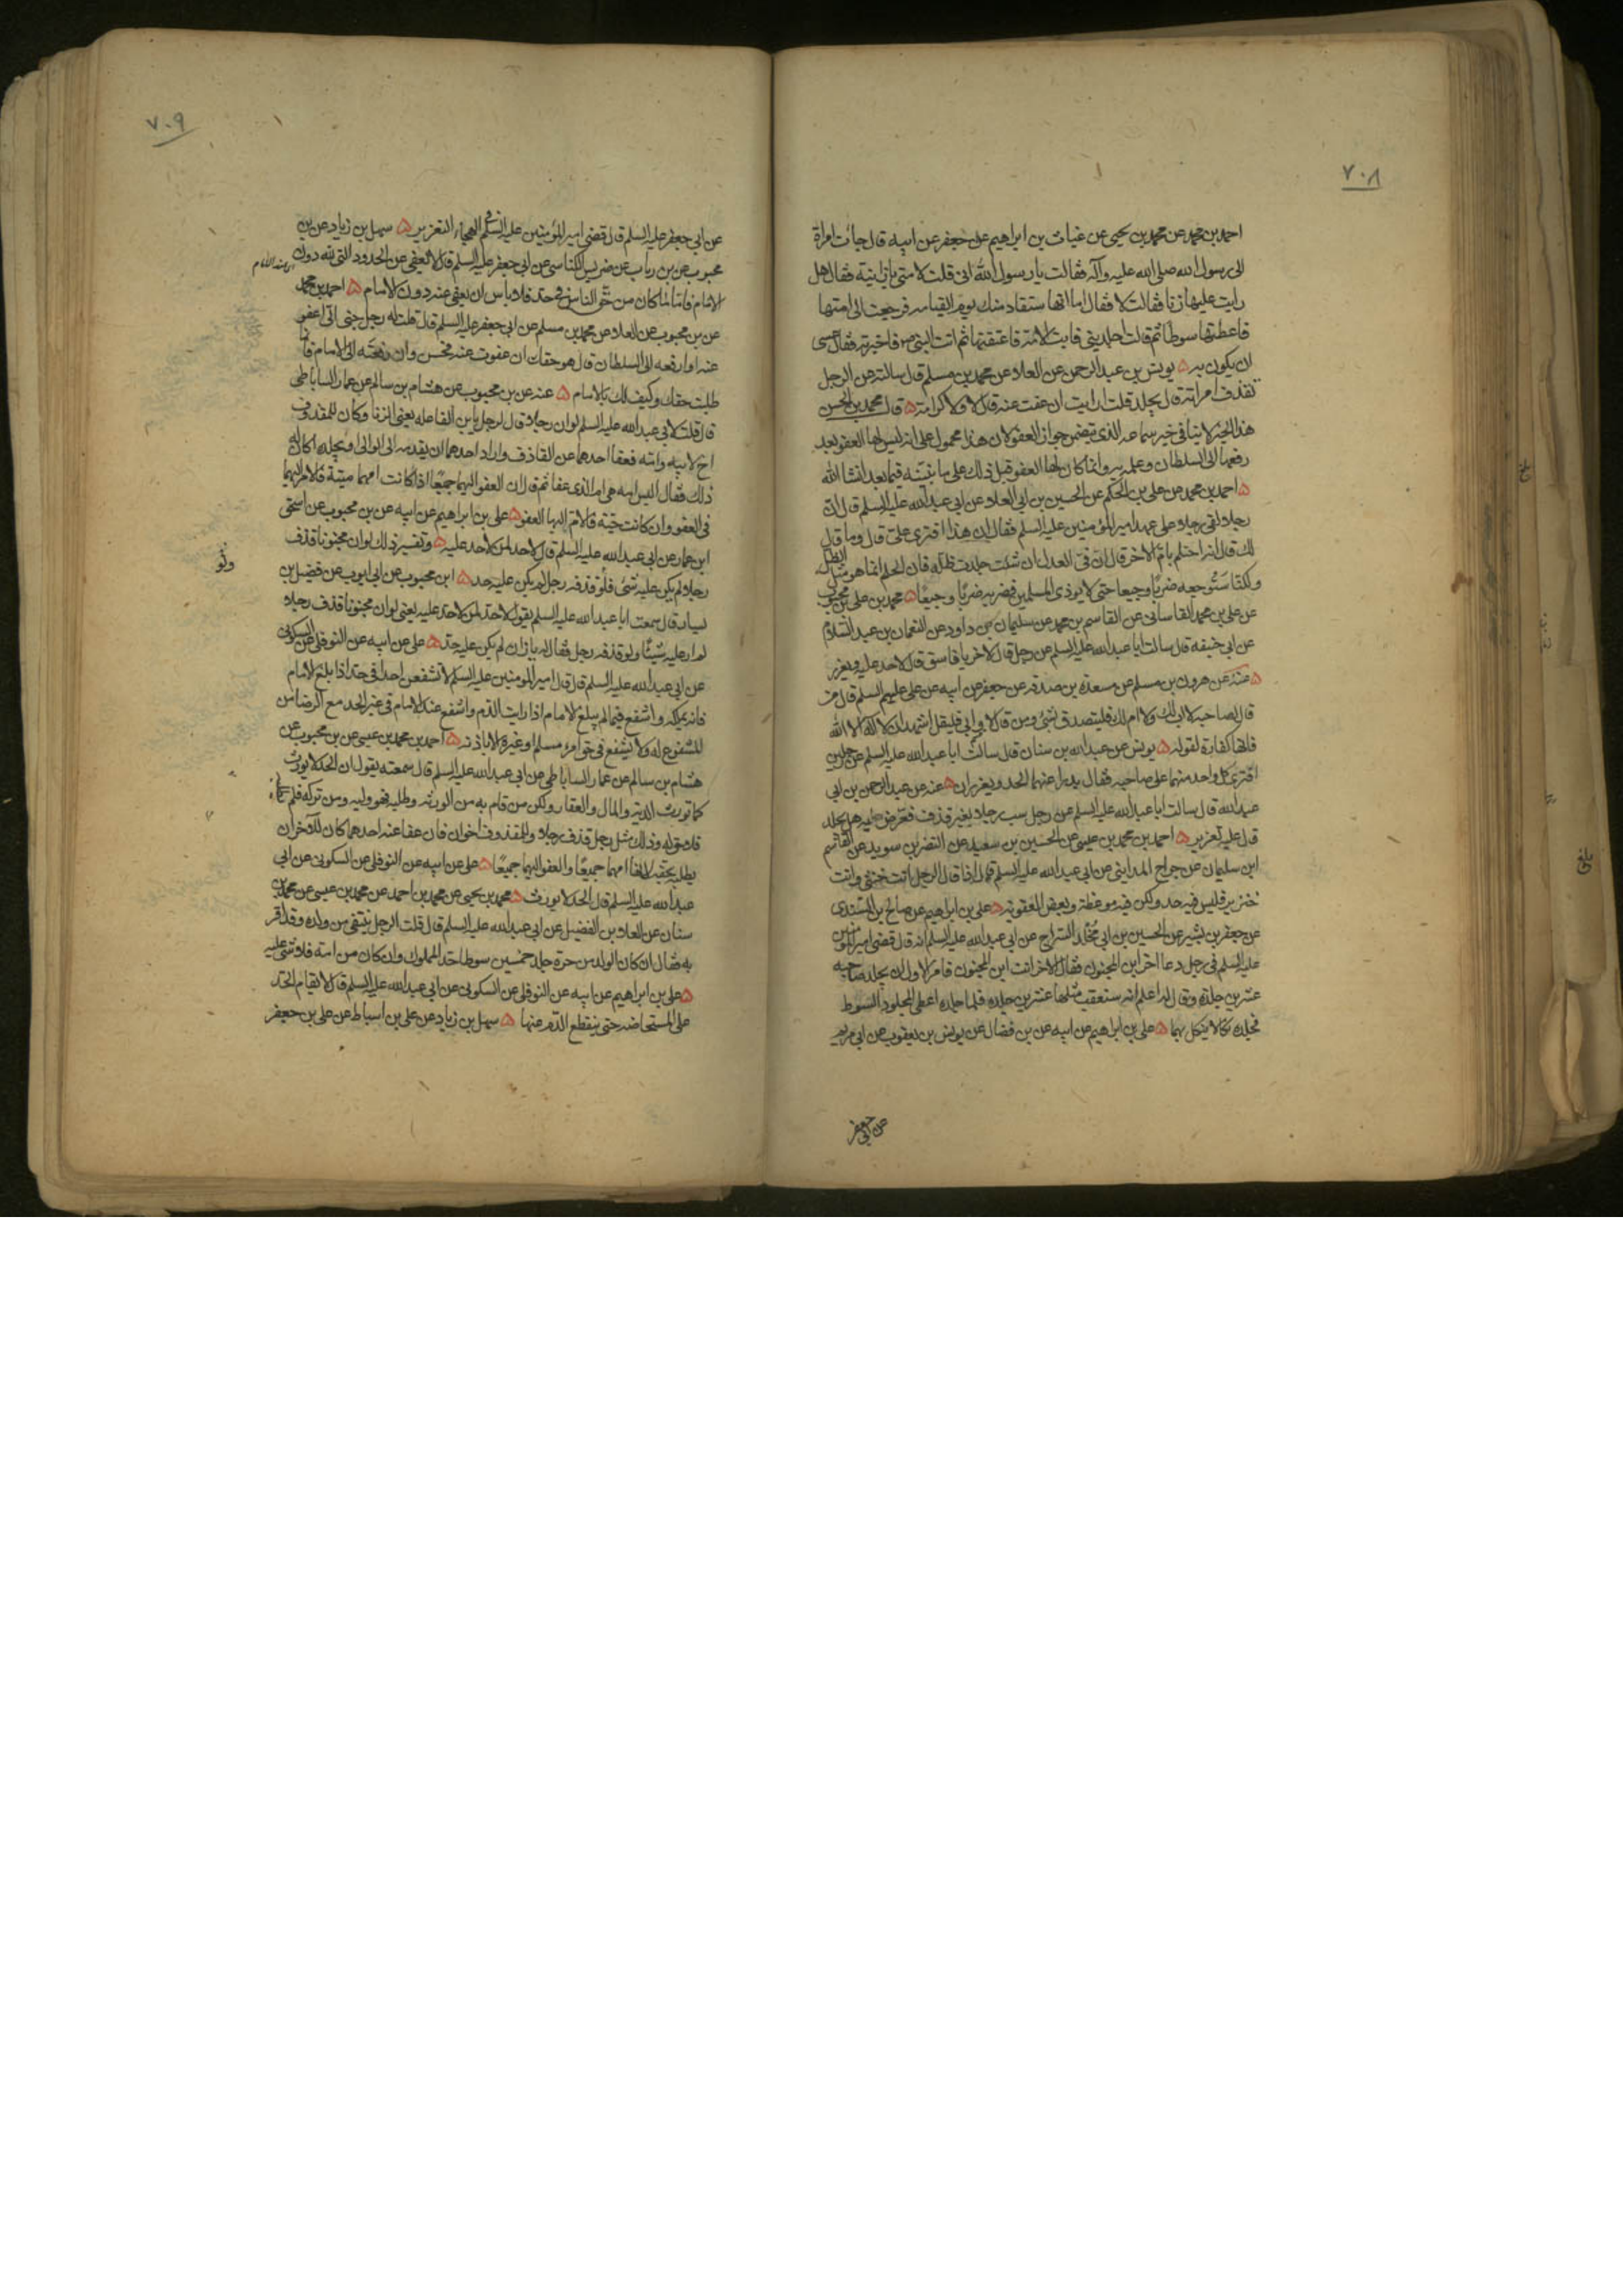 ٧٠٨
احمد بن محمد عن محمد بن يحيى عن غياث بن ابراهيم عن جعفر عن ابيه قال جاءت امراة
الى رسول الله صلى الله عليه وآله فقالت يا رسول الله انى قلت لامتى يا زانية فقال هل
رايت عليها زنا فقالت لا فقال اما انها ستقاد منك يوم القيامه فرجعت الى امتها
فاعطتها سوطا ثم قالت اجلدينى فابت الامة فاعتقتها ثم اتت النبى ص فاخبرته فقال عسى
ان يكون به ۵ يونس بن عبد الرحمن عن العلاء عن محمد بن مسلم قال سالته عن الرجل
يقذف امراته قال يجلد قلت ارايت ان عفت عنه قال لا ولا كرامة ۵ قال محمد بن الحسن
هذا الخبر لا ينافى خبر سماعه الذى تضمن جواز العفو لان هذا محمول على انه ليس لها العفو بعد
رفعها الى السلطان وعلمه به وانما كان لها العفو قبل ذلك على ما نبينه فيما بعد انشا الله
۵ احمد بن محمد عن على بن الحكم عن الحسين بن ابى العلاء عن ابى عبد الله عليه السلم قال ان
رجلا لقى رجلا على عهد امير المؤمنين عليه السلم فقال ان هذا افترى على قال وما قال
لك قال انه احتلم بام الاخر قال ان فى العدل ان شئت جلدت ظله فان الحلم انما هو مثل الظل
ولكنا سنوجعه ضربا وجيعا حتى لا يوذى المسلمين فضربه ضربا وجيعا ۵ محمد بن على بن محبوب
عن على بن محمد القاسانى عن القاسم بن محمد عن سليمان بن داود عن النعمان بن عبد السلام
عن ابى حنيفه قال سالت ابا عبد الله عليه السلم عن رجل قال لاخر يا فاسق قال لا حد عليه ويعزر
۵ عنه عن هرون بن مسلم عن مسعدة بن صدقه عن جعفر عن ابيه عن على عليهم السلم قال من
قال لصاحبه لا اب لك ولا ام لك فليتصدق بشئ ومن قال لا وابى فليقل اشهد ان لا اله الا الله
فانها كفارة لقوله ۵ يونس عن عبد الله بن سنان قال سالت ابا عبد الله عليه السلم عن رجلين
افترى كل واحد منهما على صاحبه فقال يدرا عنهما الحد ويعزران ۵ عنه عن عبد الرحمن بن ابى
عبد الله قال سالت ابا عبد الله عليه السلم عن رجل سب رجلا بغير قذف فعرض به هل يجلد
قال عليه تعزير ۵ احمد بن محمد بن عيسى عن الحسين بن سعيد عن النضر بن سويد عن القاسم
ابن سليمان عن جراح المداينى عن ابى عبد الله عليه السلم قال اذا قال الرجل انت خنثى وانت
خنزير فليس فيه حد ولكن فيه موعظة وبعض العقوبة ۵ على بن ابراهيم عن صالح بن السندى
عن جعفر بن بشير عن الحسين بن ابى مخلد السراج عن ابى عبد الله عليه السلم انه قال قضى امير المومنين
عليه السلم فى رجل دعا اخر ابن المجنون فقال الاخر انت ابن المجنون فامر الاول ان يجلد صاحبه
عشرين جلدة وقال له اعلم انه ستعقب مثلها عشرين جلده فلما جلده اعطى المجلود السوط
فجلده نكالا ينكل بهما ۵ على بن ابراهيم عن ابيه عن بن فضال عن يونس بن يعقوب عن ابى مريم
عن ابى جعفر
٧٠٩
عن ابى جعفر عليه السلم قال قضى امير المؤمنين عليه السلم فى الهجاء التعزير ۵ سهل بن زياد عن بن
محبوب عن بن رياب عن ضريس الكناسى عن ابى جعفر عليه السلم قال لا يعفى عن الحدود التى لله دون
الامام فاما ما كان من حق الناس فى حد فلا باس ان يعفى عنه دون الامام ۵ احمد بن محمد
عن بن محبوب عن العلاء عن محمد بن مسلم عن ابى جعفر عليه السلم قال قلت له رجل جنى الى اعفو
عنه او ارفعه الى السلطان قال هو حقك ان عفوت عنه فحسن وان رفعته الى الامام فانما
طلبت حقك وكيف لك بالامام ۵ عنه عن بن محبوب عن هشام بن سالم عن عمار الساباطى
قال قلت لابى عبد الله عليه السلم لو ان رجلا قال لرجل يا بن الفاعله يعنى الزنا وكان للمقذوف
اخ لابيه وامه فعفا احدهما عن القاذف واراد احدهما ان يقدمه الى الوالى ويجلده اكان له
ذلك فقال اليس امه هى ام الذى عفا ثم قال ان العفو اليهما جميعا اذا كانت امهما ميتة فالامر اليهما
فى العفو وان كانت حية فالامر اليها العفو ۵ على بن ابراهيم عن ابيه عن بن محبوب عن اسحق
ابن عمار عن ابى عبد الله عليه السلم قال لا حد لمن لا حد عليه ۵ وتفسير ذلك لو ان مجنونا قذف
رجلا لم يكن عليه شئ فلو قذفه رجل لم يكن عليه حد ۵ ابن محبوب عن ابى ايوب عن فضيل بن
يسار قال سمعت ابا عبد الله عليه السلم يقول لا حد لمن لا حد عليه يعنى لو ان مجنونا قذف رجلا
لم ار عليه شيئا ولو قذفه رجل فقال له يا زان لم يكن عليه حد ۵ على عن ابيه عن النوفلى عن السكونى
عن ابى عبد الله عليه السلم قال قال امير المومنين عليه السلم لا تشفعن احدا فى حد اذا بلغ الامام
فانه يملكه واشفع فيما لم يبلغ الامام اذا رايت الندم واشفع عند الامام فى غير الحد مع الرضا من
المشفوع له ولا يشفع فى حق امرء مسلم او غيره الا باذنه ۵ احمد بن محمد بن عيسى عن بن محبوب عن
هشام بن سالم عن عمار الساباطى عن ابى عبد الله عليه السلم قال سمعته يقول ان الحد لا يورث
كما تورث الدية والمال والعقار ولكن من قام به من الورثه وطلبه فهو وليه ومن تركه فلم يطلبه
فلا حق له وذلك مثل رجل قذف رجلا وللمقذوف اخوان فان عفا عنه احدهما كان للاخر ان
يطلبه بحقه لانها امهما جميعا والعفو اليهما جميعا ۵ على عن ابيه عن النوفلى عن السكونى عن ابى
عبد الله عليه السلم قال الحد لا يورث ۵ محمد بن يحيى عن محمد بن احمد عن محمد بن عيسى عن محمد بن
سنان عن العلاء بن الفضيل عن ابى عبد الله عليه السلم قال قلت الرجل ينتفى من ولده وقد اقر
به فقال ان كان الولد من حرة جلد خمسين سوطا حد المملوك وان كان من امة فلا شئ عليه
۵ على بن ابراهيم عن ابيه عن النوفلى عن السكونى عن ابى عبد الله عليه السلم قال لا يقام الحد
على المستحاضه حتى ينقطع الدم عنها ۵ سهل بن زياد عن على بن اسباط عن على بن جعفر
ولو